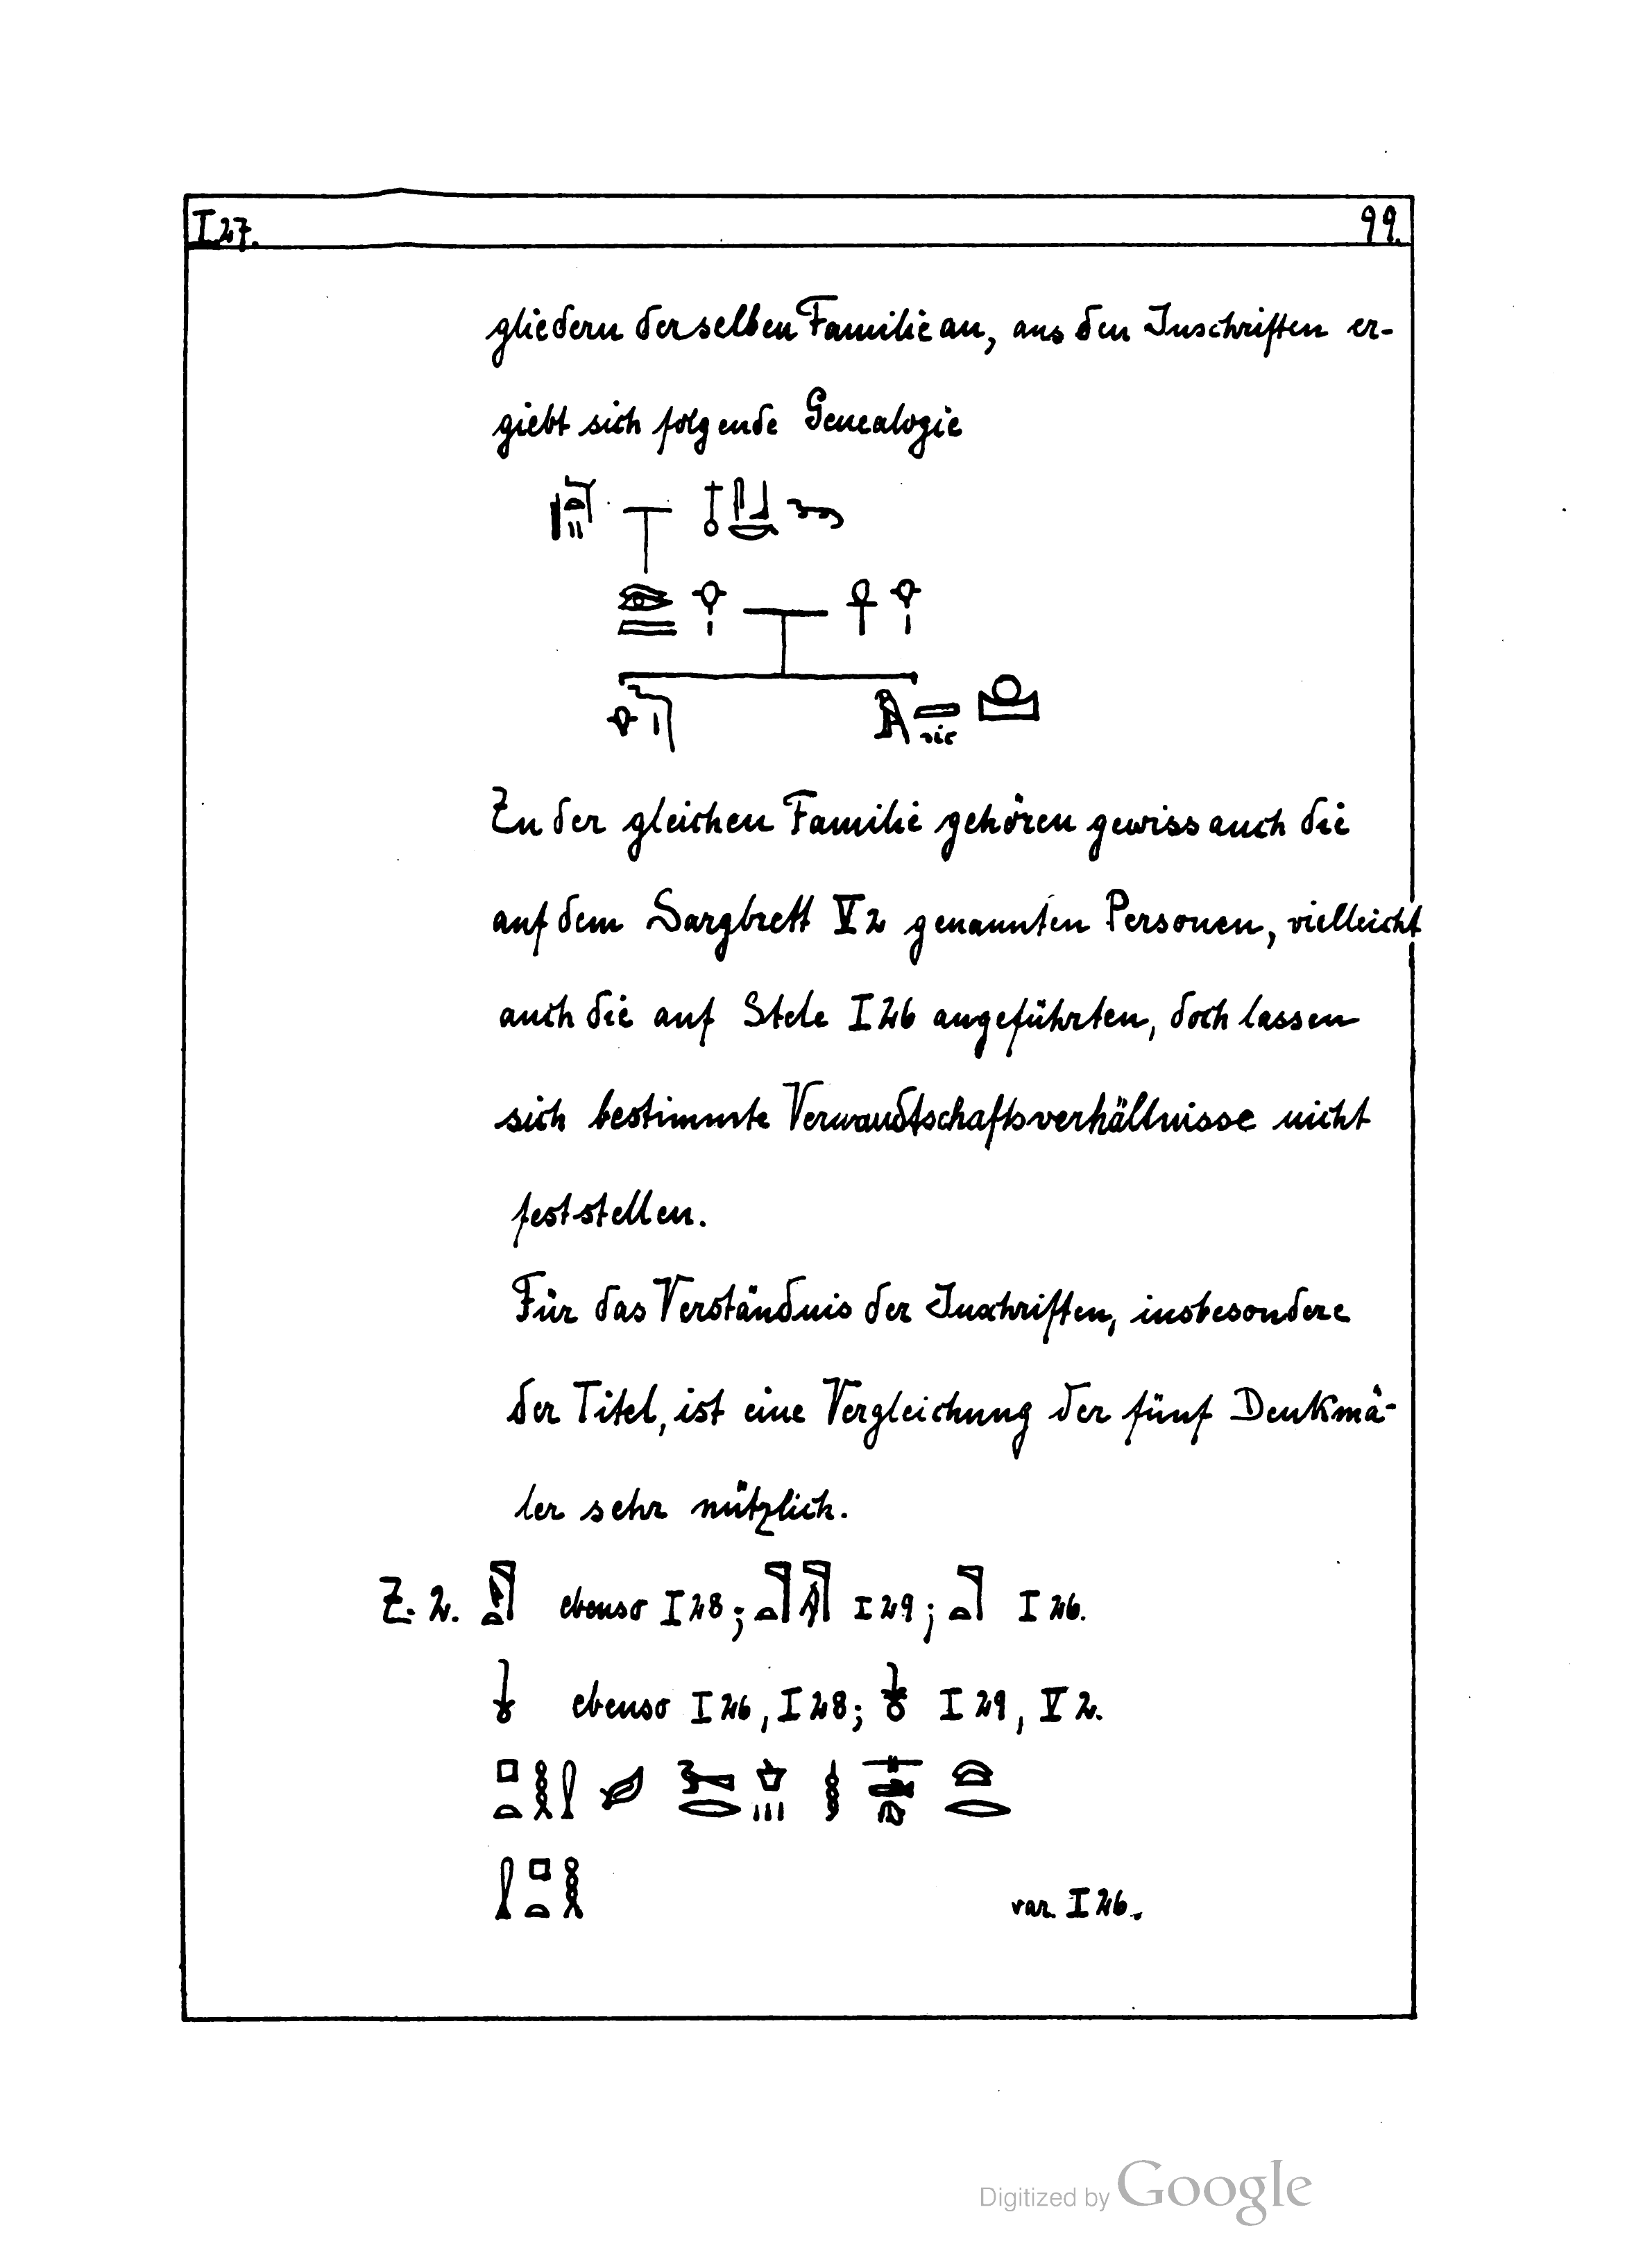 I 27. 99.
gliedern derselben Familie an, aus den Inschriften er-
giebt sich folgende Genealogie
sic
Zu der gleichen Familie gehören gewiss auch die
auf dem Sargbrett V 2 genannten Personen, vielleicht
auch die auf Stele I 26 angeführten, doch lassen
sich bestimmte Verwandtschaftsverhältnisse nicht
feststellen.
Für das Verständnis der Inschriften, insbesondere
der Titel, ist eine Vergleichung der fünf Denkmä-
ler sehr nützlich.
Z. 2. ebenso I 28; I 29; I 26.
ebenso I 26, I 28; I 29, V 2.
var. I 26.
Digitized by Google